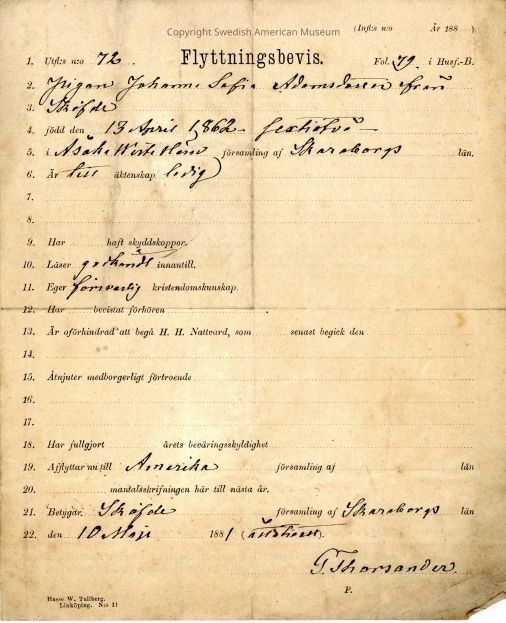 Copyright Swedish American Museum
(Inft:s n:o År 188 )
1. Utfl:s n:o 72. Flyttningsbevis. Fol. 79. i Husf.-B.
2. Pigan Johanna Sofia från
3. Sköfde
4. född den 13 April 1862 – sextiotvå –
5. i Asåka församling af Skaraborgs län.
6. Är till äktenskap ledig
7.
8.
9. Har haft skyddskoppor.
10. Läser godkändt innantill.
11. Eger försvarlig kristendomskunskap.
12. Har bevistat förhören
13. Är oförhindrad att begå H. H. Nattvard, som senast begick den
14.
15. Åtnjuter medborgerligt förtroende
16.
17.
18. Har fullgjort årets beväringsskyldighet
19. Afflyttar nu till Amerika församling af län
20. mantalsskrifningen här till nästa år.
21. Betygar. Sköfde församling af Skaraborgs län
22. den 10 Maji 1881 (åttioett)
Thorsander.
P.
Hasse W. Tullberg.
Linköping. N:o 11